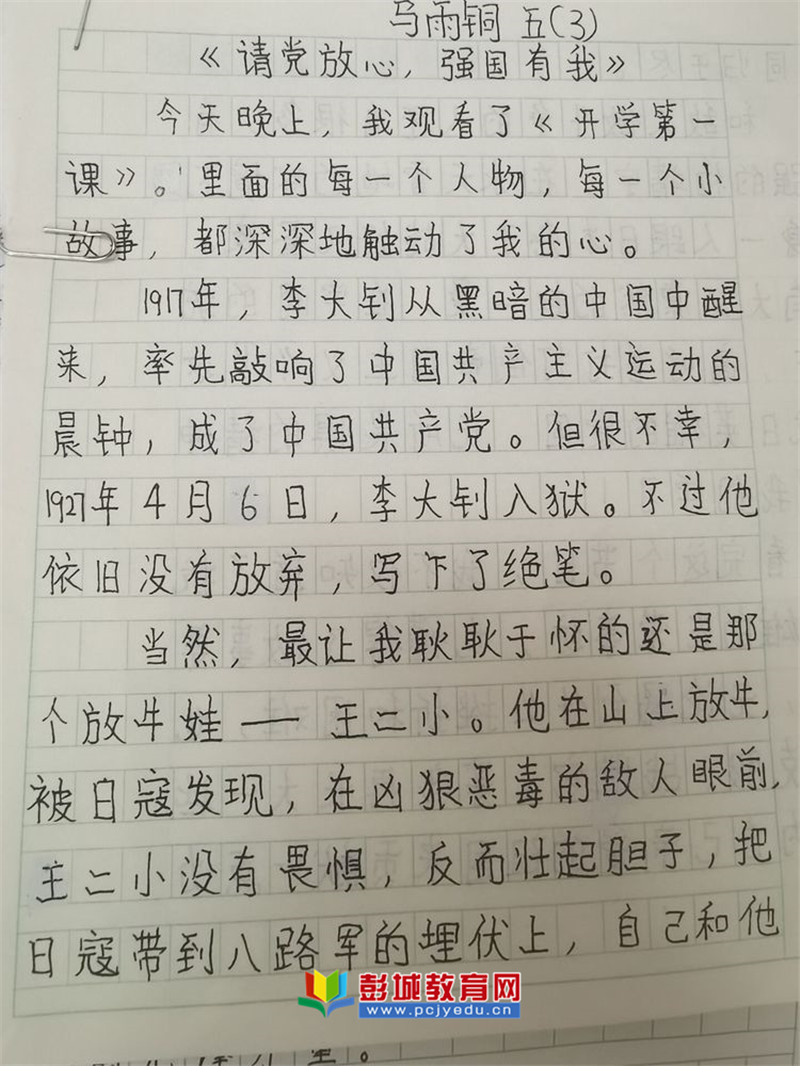 马雨铜 五(3)
《请党放心，强国有我》
今天晚上，我观看了《开学第一
课》。里面的每一个人物，每一个小
故事，都深深地触动了我的心。
1917年，李大钊从黑暗的中国中醒
来，率先敲响了中国共产主义运动的
晨钟，成了中国共产党。但很不幸，
1927年4月6日，李大钊入狱。不过他
依旧没有放弃，写下了绝笔。
当然，最让我耿耿于怀的还是那
个放牛娃——王二小。他在山上放牛，
被日寇发现，在凶狠恶毒的敌人眼前，
王二小没有畏惧，反而壮起胆子，把
日寇带到八路军的埋伏上，自己和他
彭城教育网
www.pcjyedu.cn